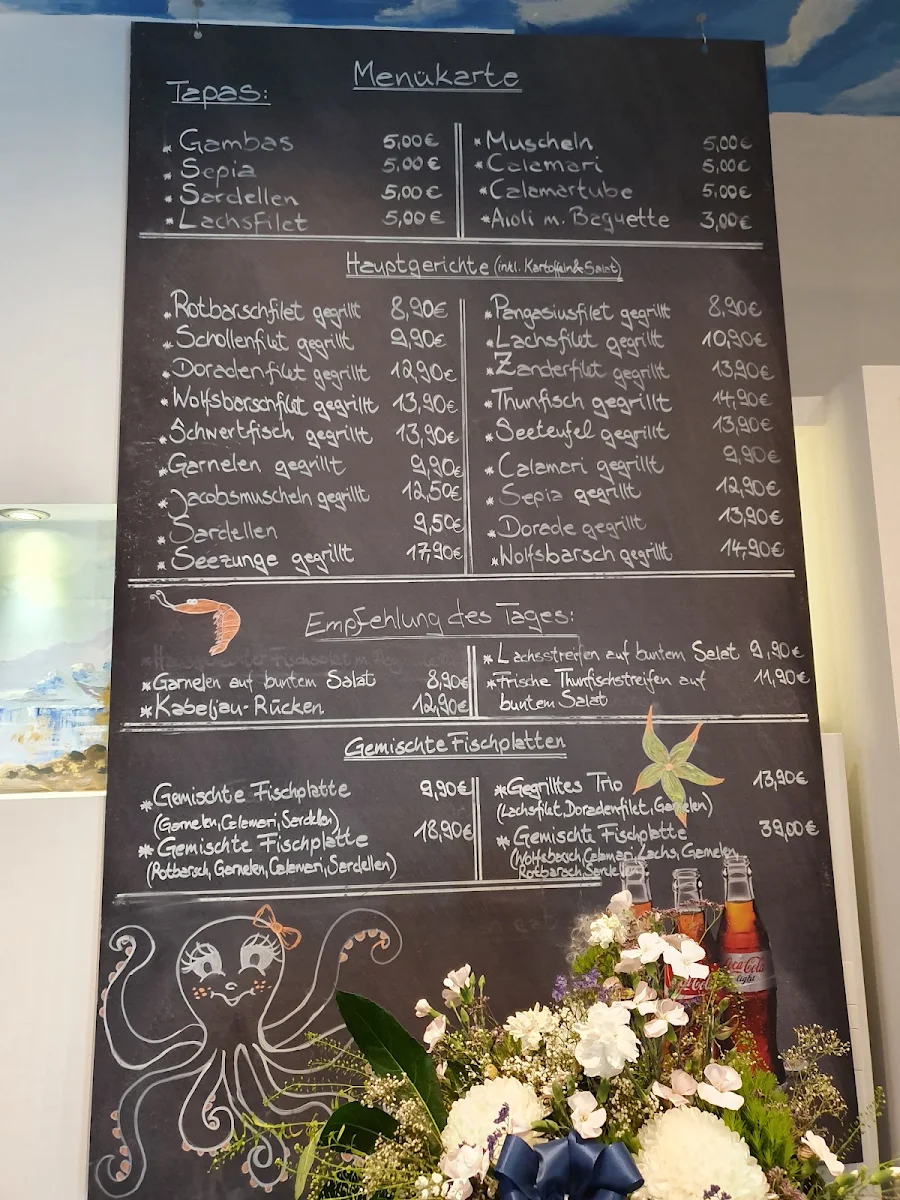 Menükarte
Tapas:
* Gambas 5,00€
* Sepia 5,00€
* Sardellen 5,00€
* Lachsfilet 5,00€
* Muscheln 5,00€
* Calamari 5,00€
* Calamartube 5,00€
* Aioli m. Baguette 3,00€
Hauptgerichte (inkl. Kartoffeln & Salat)
* Rotbarschfilet gegrillt 8,90€
* Schollenfilet gegrillt 9,90€
* Doradenfilet gegrillt 12,90€
* Wolfsbarschfilet gegrillt 13,90€
* Schwertfisch gegrillt 13,90€
* Garnelen gegrillt 9,90€
* Jacobsmuscheln gegrillt 12,50€
* Sardellen 9,50€
* Seezunge gegrillt 17,90€
* Pangasiusfilet gegrillt 8,90€
* Lachsfilet gegrillt 10,90€
* Zanderfilet gegrillt 13,90€
* Thunfisch gegrillt 14,90€
* Seeteufel gegrillt 13,90€
* Calamari gegrillt 9,90€
* Sepia gegrillt 12,90€
* Dorade gegrillt 13,90€
* Wolfsbarsch gegrillt 14,90€
Empfehlung des Tages:
* Garnelen auf buntem Salat 8,90€
* Kabeljau-Rücken 12,90€
* Lachsstreifen auf buntem Salat 9,90€
* Frische Thunfischstreifen auf 11,90€
buntem Salat
Gemischte Fischplatten
* Gemischte Fischplatte 9,90€
(Garnelen, Calamari, Sardellen)
* Gemischte Fischplatte 18,90€
(Rotbarsch, Garnelen, Calamari, Sardellen)
* Gegrilltes Trio 13,90€
(Lachsfilet, Doradenfilet, Garnelen)
* Gemischte Fischplatte 39,00€
(Wolfsbarsch, Calamari, Lachs, Garnelen,
Rotbarsch, Sardellen)
Coca-Cola
light